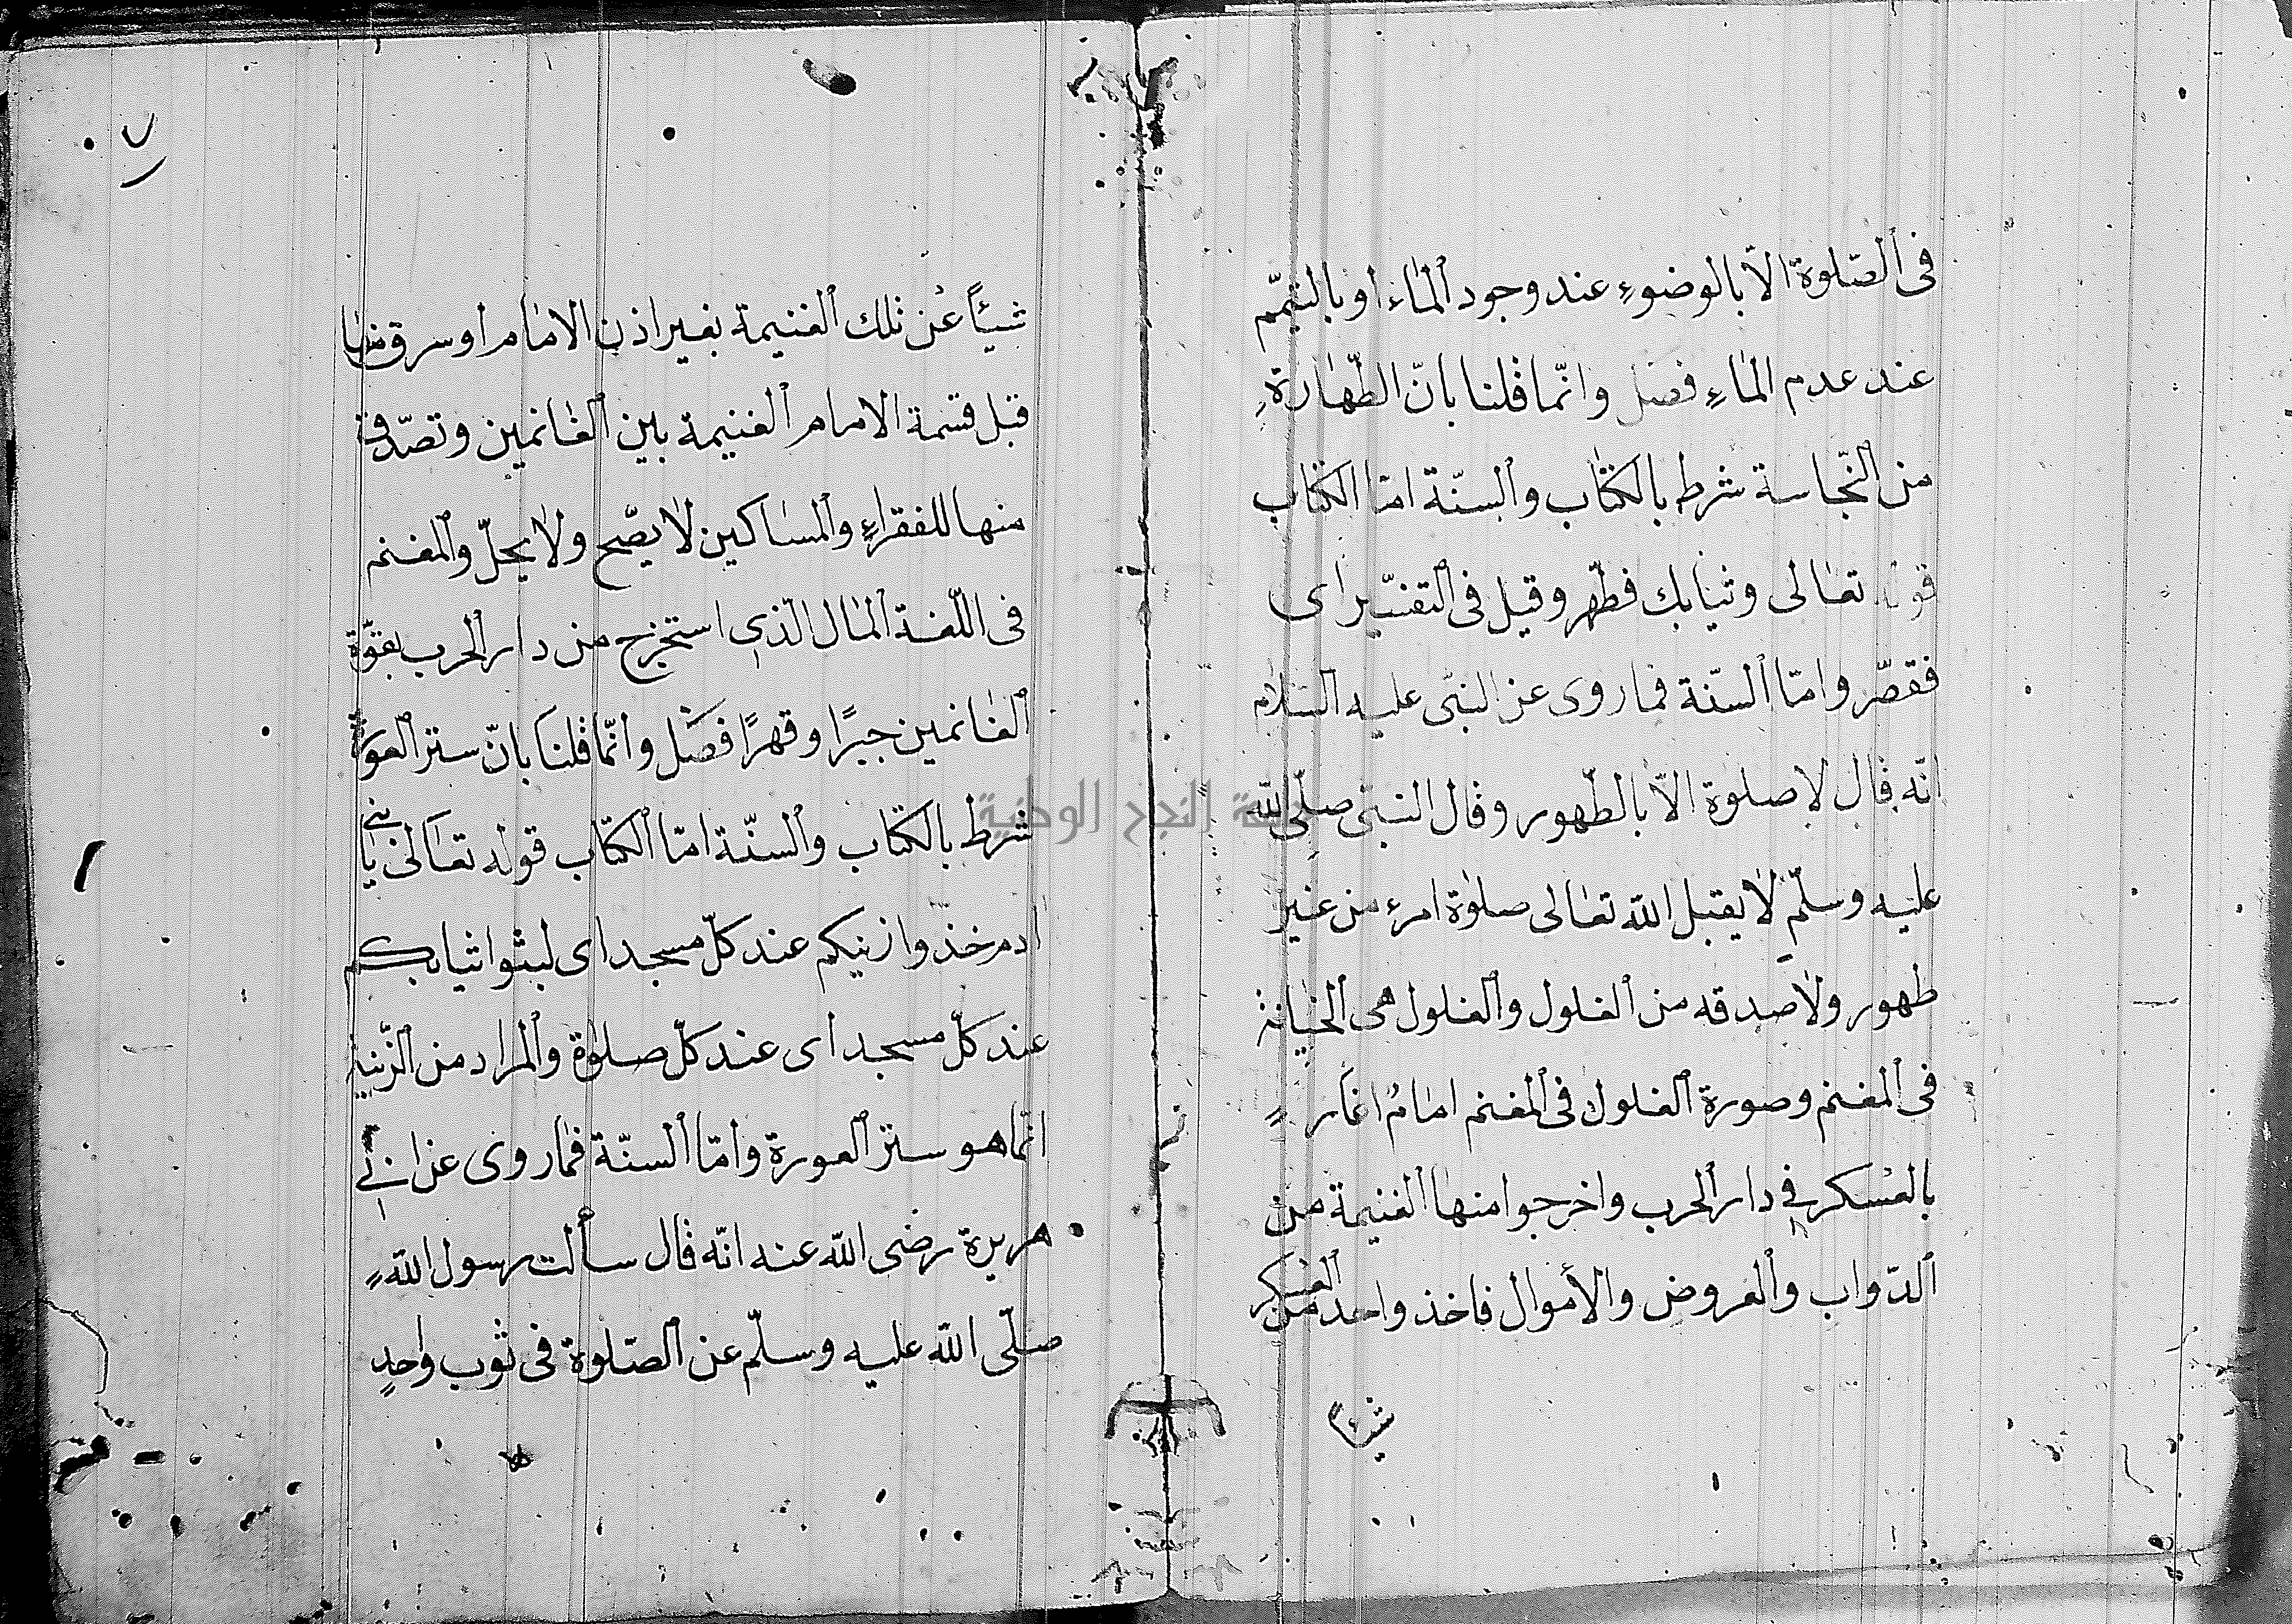 فى الصّلوة الّا بالوضوءِ عند وجود الماء او بالتيمّم
عند عدم الماءِ فصل وانّما قلنا بانّ الطّهارةِ
من النّجاسة شرط بالكتاب والسنّة امّا الكتاب
قوله تعالى وثيابك فطهّر وقيل فى التفسير اى
فقصّر وامّا السنّة فما روى عن النبّى عليه السلام
انّه قال لا صلوة الّا بالطّهور وقال النبىّ صلّى الله
عليه وسلّم لا يقبل الله تعالى صلوة امرءٍ من غير
طهور ولا صدقه من الغلول والغلول هى الخيانة
فى المغنم وصورة الغلول فى المغنم امامٌ اغار
بالعسكر فى دار الحرب واخرجوا منها الغنيمة من
الدّواب والعروض والأموال فاخذ واحد من العسكر
شيئاً
٧
شيئاً عن تلك الغنيمة بغير اذن الامام او سرق منها
قبل قسمة الامام الغنيمة بين الغانمين وتصدّق
منها للفقراءِ والمساكين لا يصّح ولا يحلّ والمغنم
فى اللّغة المال الّذى استخرج من دار الحرب بقوّة
الغانمين جبرًا وقهرًا فصل وانّما قلنا بانّ ستر العورة
شرط بالكتاب والسنّة امّا الكتاب قوله تعالى يا بنى
ادم خذوا زينتكم عند كلّ مسجد اى لبثوا ثيابكم
عند كلّ مسجد اى عند كلّ صلوة والمراد من الزّينة
انّما هو ستر العورة وامّا السنّة فما روى عن ابى
هريرة رضى الله عنه انّه قال سألت رسول الله
صلّى الله عليه وسلّم عن الصّلوة فى ثوب واحدٍ
النجاح الوطنية